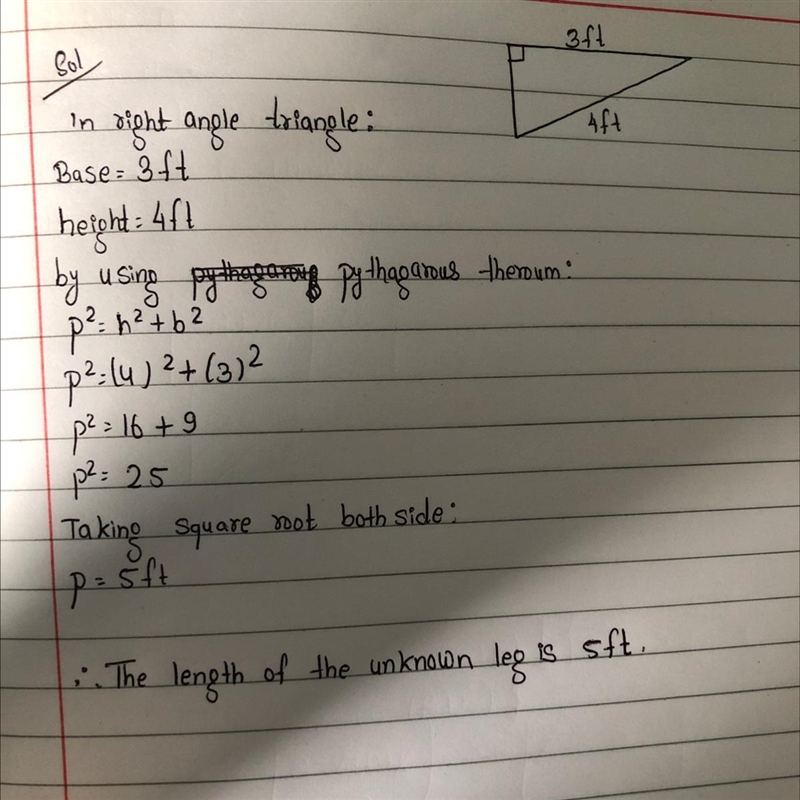 3ft
Sol
4ft
in right angle triangle:
Base = 3ft
height = 4ft
by using pythagarous pythagarous theroum:
p² = h² + b²
p² = (4)² + (3)²
p² = 16 + 9
p² = 25
Taking square root both side:
p = 5ft
∴ The length of the unknown leg is 5ft.